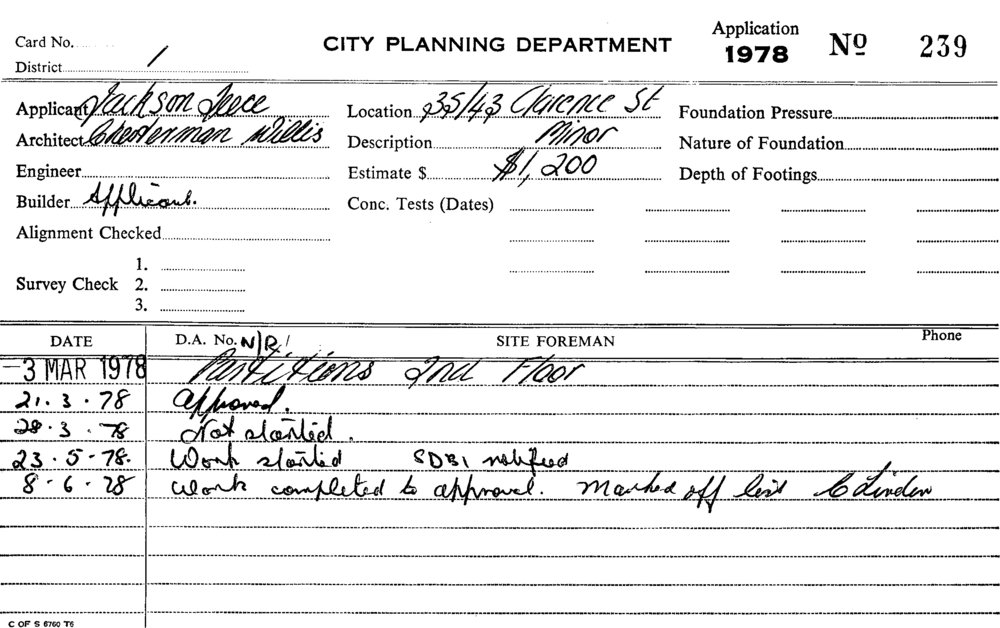 Application
Card No. CITY PLANNING DEPARTMENT 1978 Nº 239
District 1
Applicant Jackson Teece Location 35/43 Clarence St Foundation Pressure
Architect Chesterman Willis Description Minor Nature of Foundation
Engineer Estimate $ $1,200 Depth of Footings
Builder Applicant. Conc. Tests (Dates)
Alignment Checked
1.
Survey Check 2.
3.
DATE D.A. No. N/R/ SITE FOREMAN Phone
-3 MAR 1978 Partitions 2nd Floor
21.3.78 Approved.
28.3.78 Not started.
23.5-78. Work started SDBI notified
8.6.78 Work completed to approval. Marked off list C Linden
C OF S 6760 T6